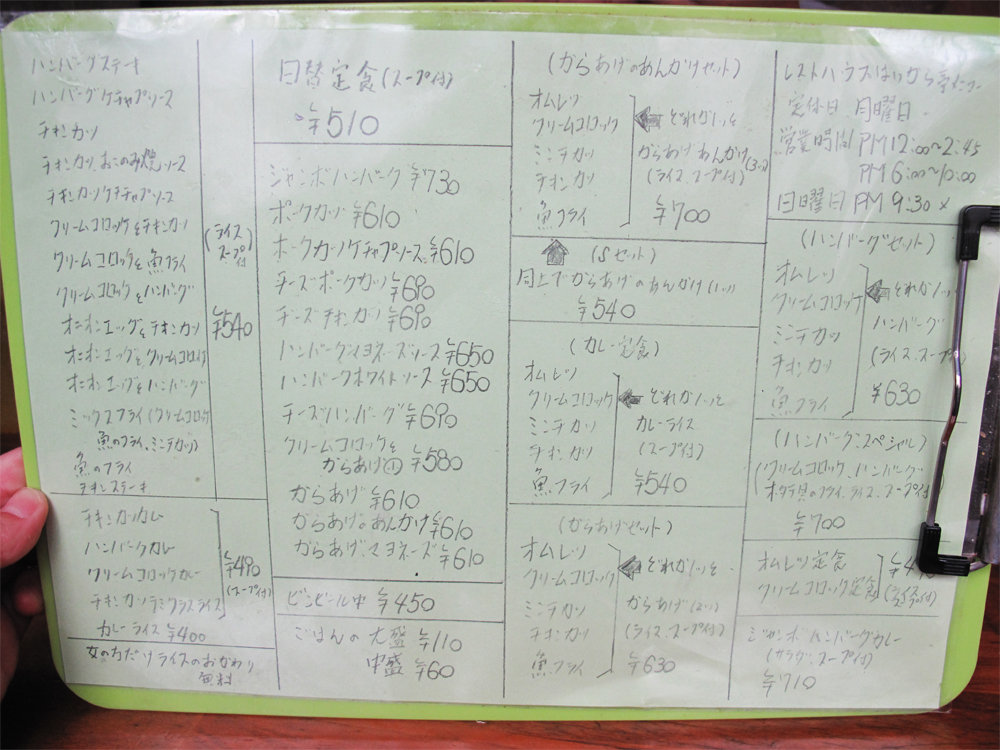 ハンバーグステーキ
ハンバーグケチャプソース
チキンカツ
チキンカツ おこのみ焼ソース
チキンカツケチャプソース
クリームコロッケとチキンカツ
クリームコロッケと魚フライ
クリームコロッケとハンバーグ
オニオンエッグとチキンカツ
オニオンエッグとクリームコロッケ
オニオンエッグとハンバーグ
ミックスフライ(クリームコロッケ
魚のフライ、ミンチカツ)
魚のフライ
チキンステーキ
(ライス
スープ付)
¥540
チキンカツカレー
ハンバークカレー
クリームコロッケカレー
チキンカツデミグラスライス
¥490
(スープ付)
カレーライス ¥400
女の方だけライスのおかわり
無料
日替定食(スープ付)
¥510
ジャンボハンバーク ¥730
ポークカツ ¥610
ポークカツケチャプソース ¥610
チーズポークカツ ¥690
チーズチキンカツ ¥690
ハンバーグマヨネーズソース ¥650
ハンバークホワイトソース ¥650
チーズハンバーグ ¥690
クリームコロッケと
からあげ ¥580
からあげ ¥610
からあげのあんかけ ¥610
からあげマヨネーズ ¥610
ビンビール中 ¥450
ごはんの大盛 ¥110
中盛 ¥60
(からあげのあんかけセット)
オムレツ
クリームコロッケ
ミンチカツ
チキンカツ
魚フライ
どれか1ツと
からあげあんかけ(3ツ)
(ライス、スープ付)
¥700
(Sセット)
同上でからあげのあんかけ(1ツ)
¥540
(カレー定食)
オムレツ
クリームコロッケ
ミンチカツ
チキンカツ
魚フライ
どれか1ツと
カレーライス
(スープ付)
¥540
(からあげセット)
オムレツ
クリームコロッケ
ミンチカツ
チキンカツ
魚フライ
どれか1ツと
からあげ(2ツ)
(ライス、スープ付)
¥630
レストハウスはいから亭
定休日 月曜日
営業時間 PM12:00〜2:45
PM6:00〜10:00
日曜日 PM9:30
(ハンバーグセット)
オムレツ
クリームコロッケ
ミンチカツ
チキンカツ
魚フライ
どれか1ツと
ハンバーグ
(ライス、スープ付)
¥630
(ハンバークスペシャル)
(クリームコロッケ、ハンバーグ
ホタテ貝のフライ、ライス、スープ付)
¥700
オムレツ定食
クリームコロッケ定食
ジャンボハンバーグカレー
(サラダ、スープ付)
¥710